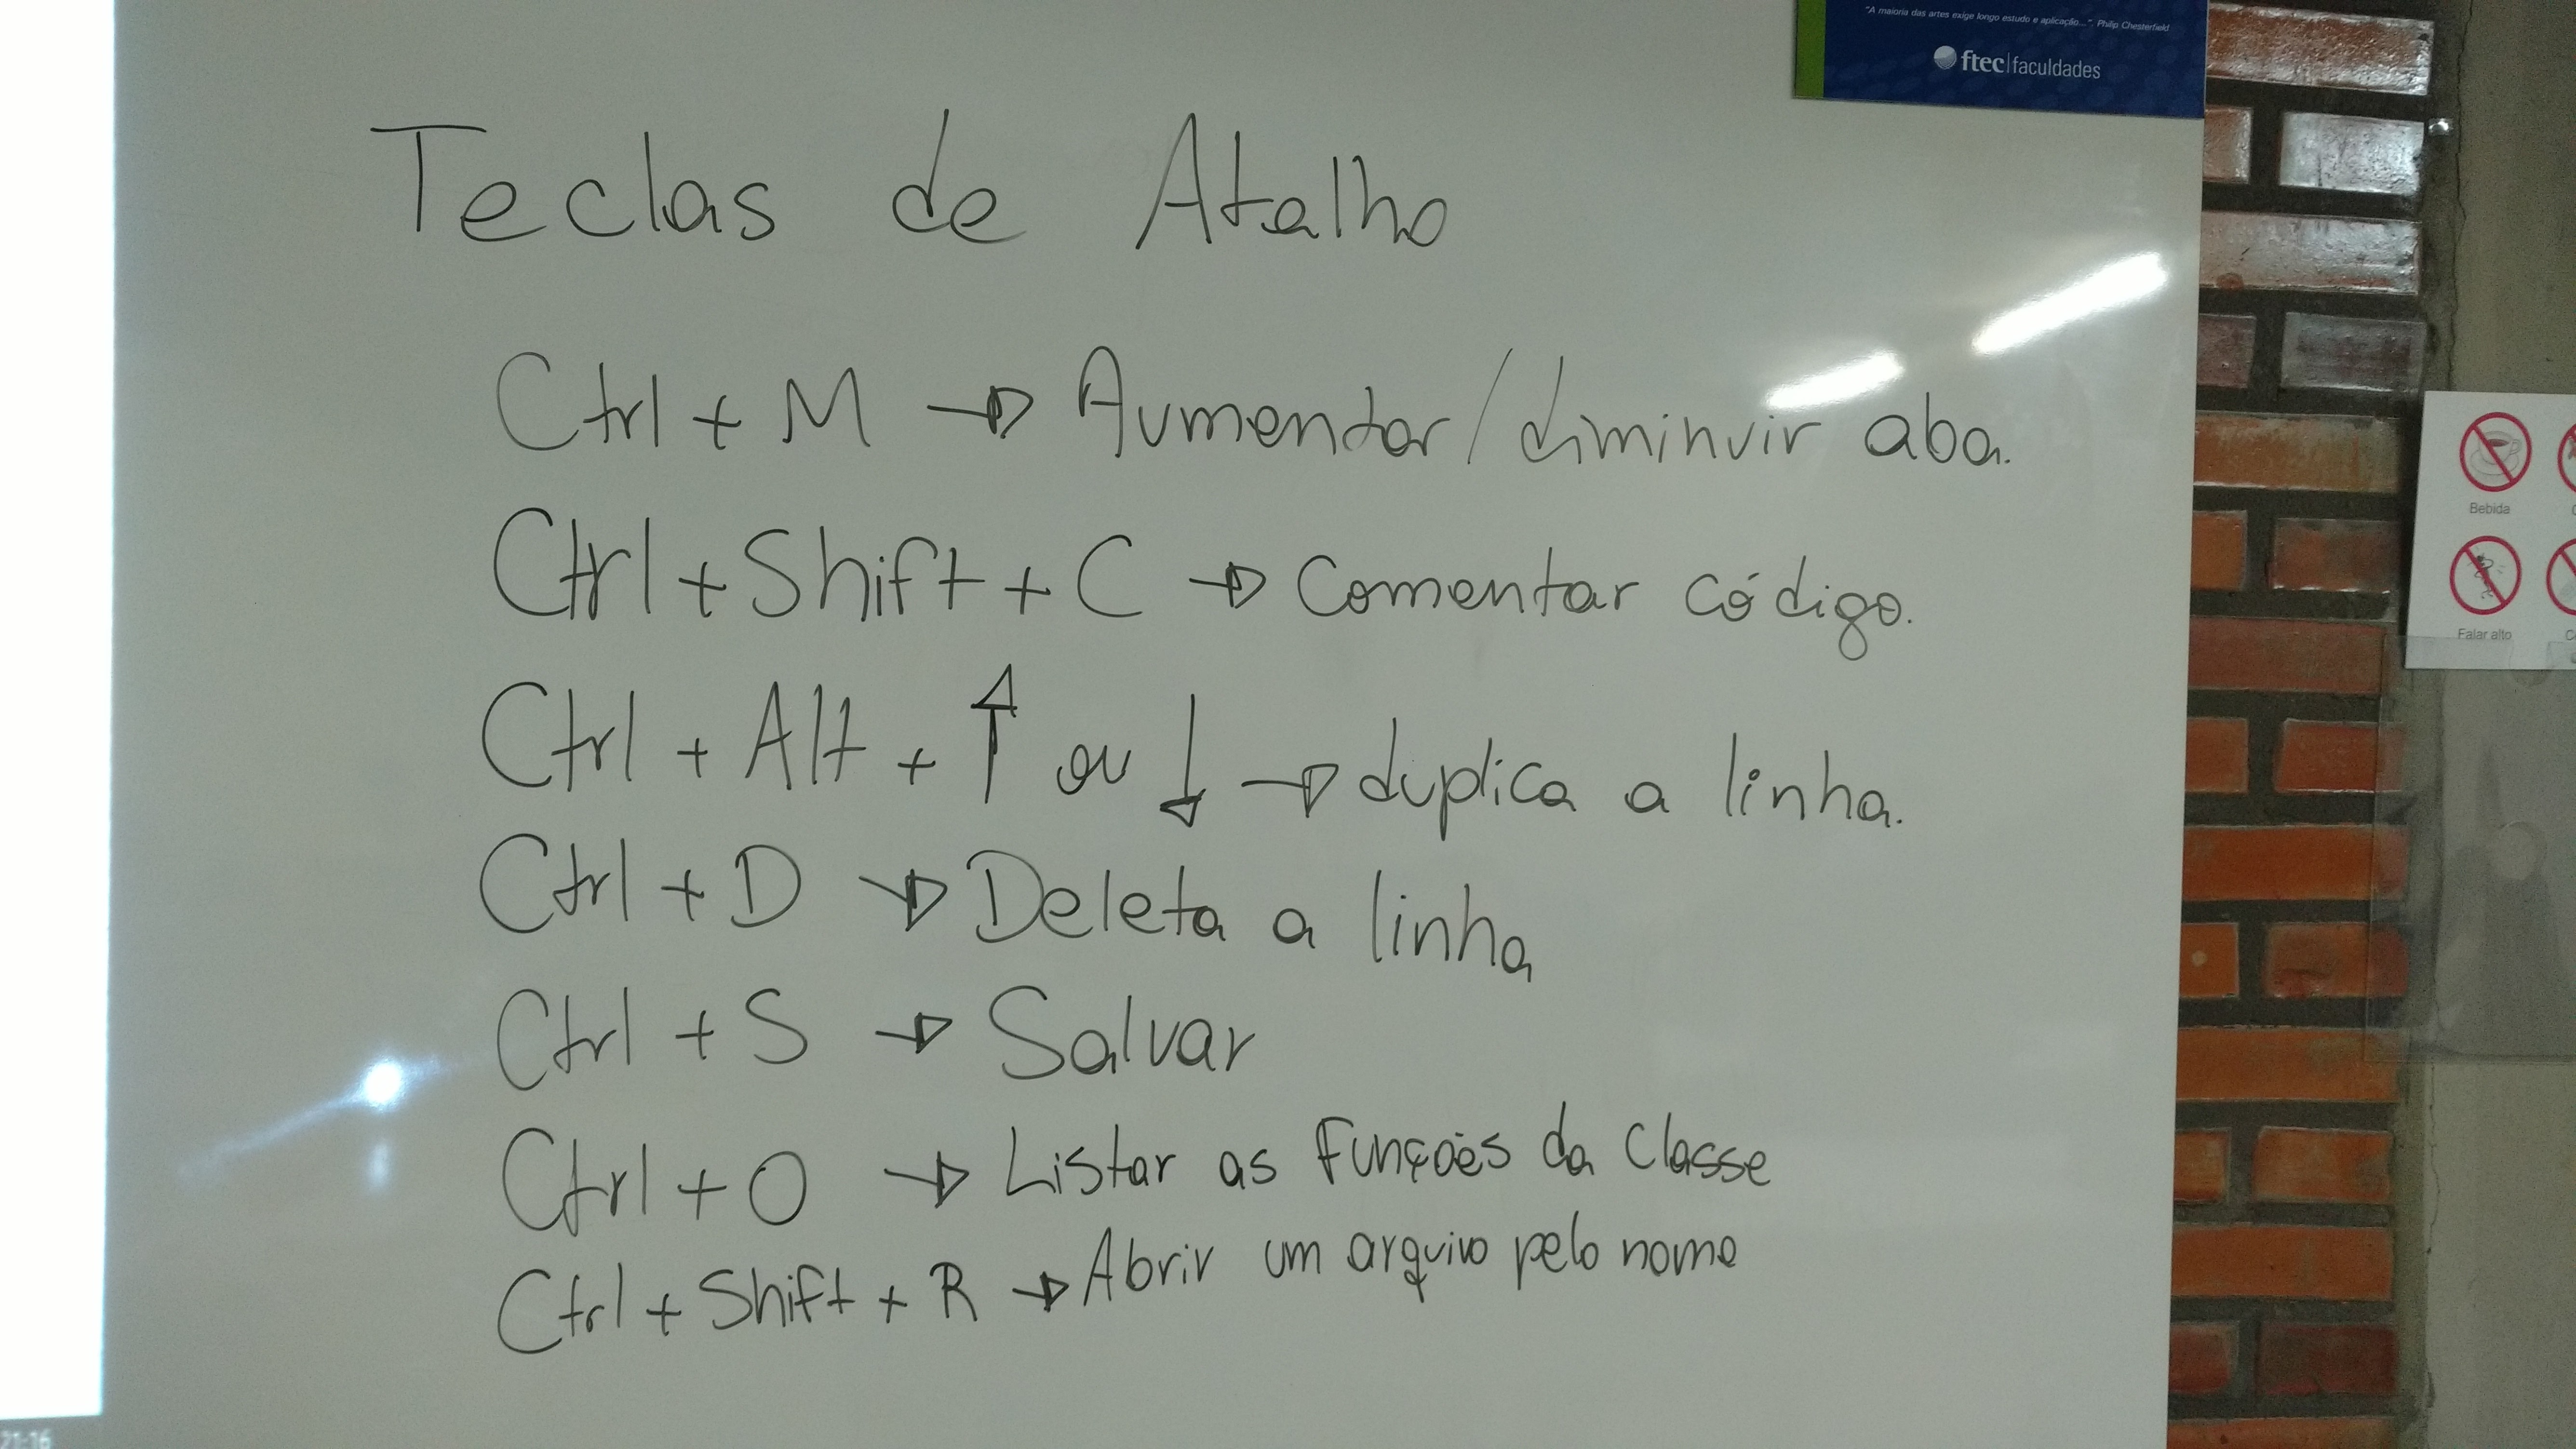 "A maioria das artes exige longo estudo e aplicação...". Philip Chesterfield
ftec|faculdades
Teclas de Atalho
Ctrl + M → Aumentar/diminuir aba.
Ctrl + Shift + C → Comentar código.
Ctrl + Alt + ↑ ou ↓ → duplica a linha.
Ctrl + D → Deleta a linha
Ctrl + S → Salvar
Ctrl + O → Listar as funções da Classe
Ctrl + Shift + R → Abrir um arquivo pelo nome
Bebida
Falar alto
21:16